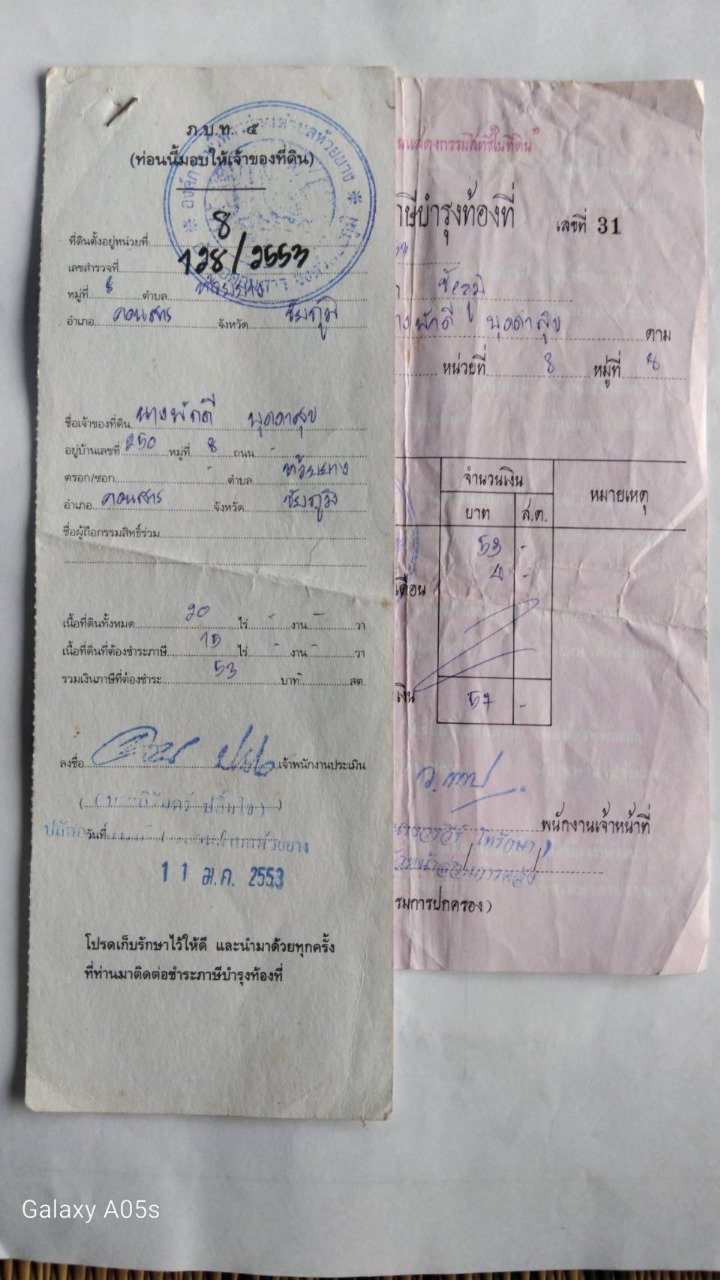 ภ.บ.ท. ๕
(ท่อนนี้มอบให้เจ้าของที่ดิน)
ที่ดินตั้งอยู่หน่วยที่ 8
เลขสำรวจที่ 128/2553
หมู่ที่ 8 ตำบล ห้วยยาง
อำเภอ คอนสาร จังหวัด ชัยภูมิ
ชื่อเจ้าของที่ดิน นางภักดี พุดดาสุข
อยู่บ้านเลขที่ 250 หมู่ที่ 8 ถนน -
ตรอก/ซอก - ตำบล ห้วยยาง
อำเภอ คอนสาร จังหวัด ชัยภูมิ
ชื่อผู้ถือกรรมสิทธิ์ร่วม
เนื้อที่ดินทั้งหมด 20 ไร่ - งาน - วา
เนื้อที่ดินที่ต้องชำระภาษี 15 ไร่ - งาน - วา
รวมเงินภาษีที่ต้องชำระ 53 บาท - สต.
ลงชื่อ เจ้าพนักงานประเมิน
วันที่
11 ม.ค. 2553
โปรดเก็บรักษาไว้ให้ดี และนำมาด้วยทุกครั้ง
ที่ท่านมาติดต่อชำระภาษีบำรุงท้องที่
แสดงกรรมสิทธิ์ในที่ดิน"
ษีบำรุงท้องที่ เลขที่ 31
ชัยภูมิ
างภักดี พุดดาสุข ตาม
หน่วยที่ 8 หมู่ที่ 8
จำนวนเงิน หมายเหตุ
บาท ส.ต.
53 -
เดือน 4 -
เงิน 57 -
พนักงานเจ้าหน้าที่
รมการปกครอง)
Galaxy A05s